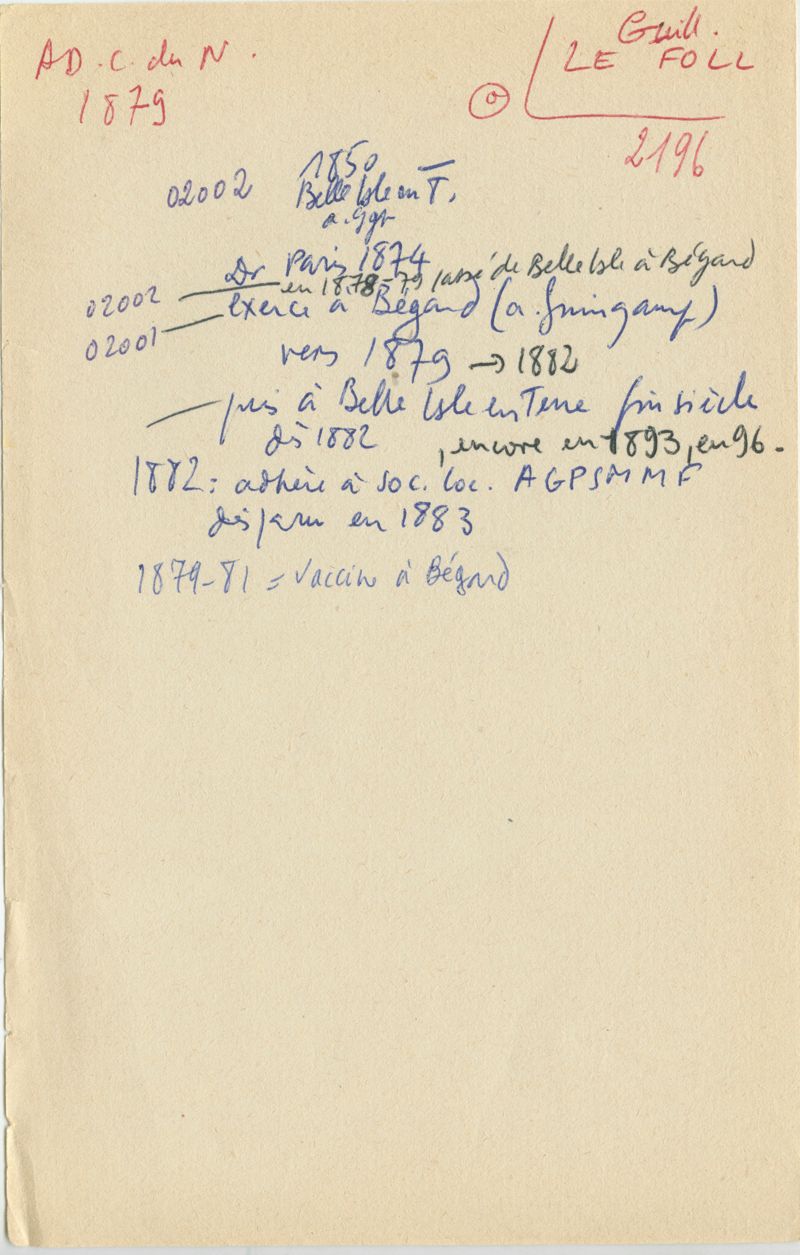 AD. C. du N.
1879
Guill.
LE FOLL
2196
1850
02002 Belle Isle en T.
a. Ggp
Dr Paris 1874
en 1878-79 passé de Belle Isle à Bégard
02002 exerce à Bégard (a. Guingamp)
02001
vers 1879 → 1882
puis à Belle Isle en Terre fin siècle
dès 1882 , encore en 1893, en 96.
1882 : adhère à soc. loc. AGPSMMF
disparu en 1883
1879-81 = vaccine à Bégard